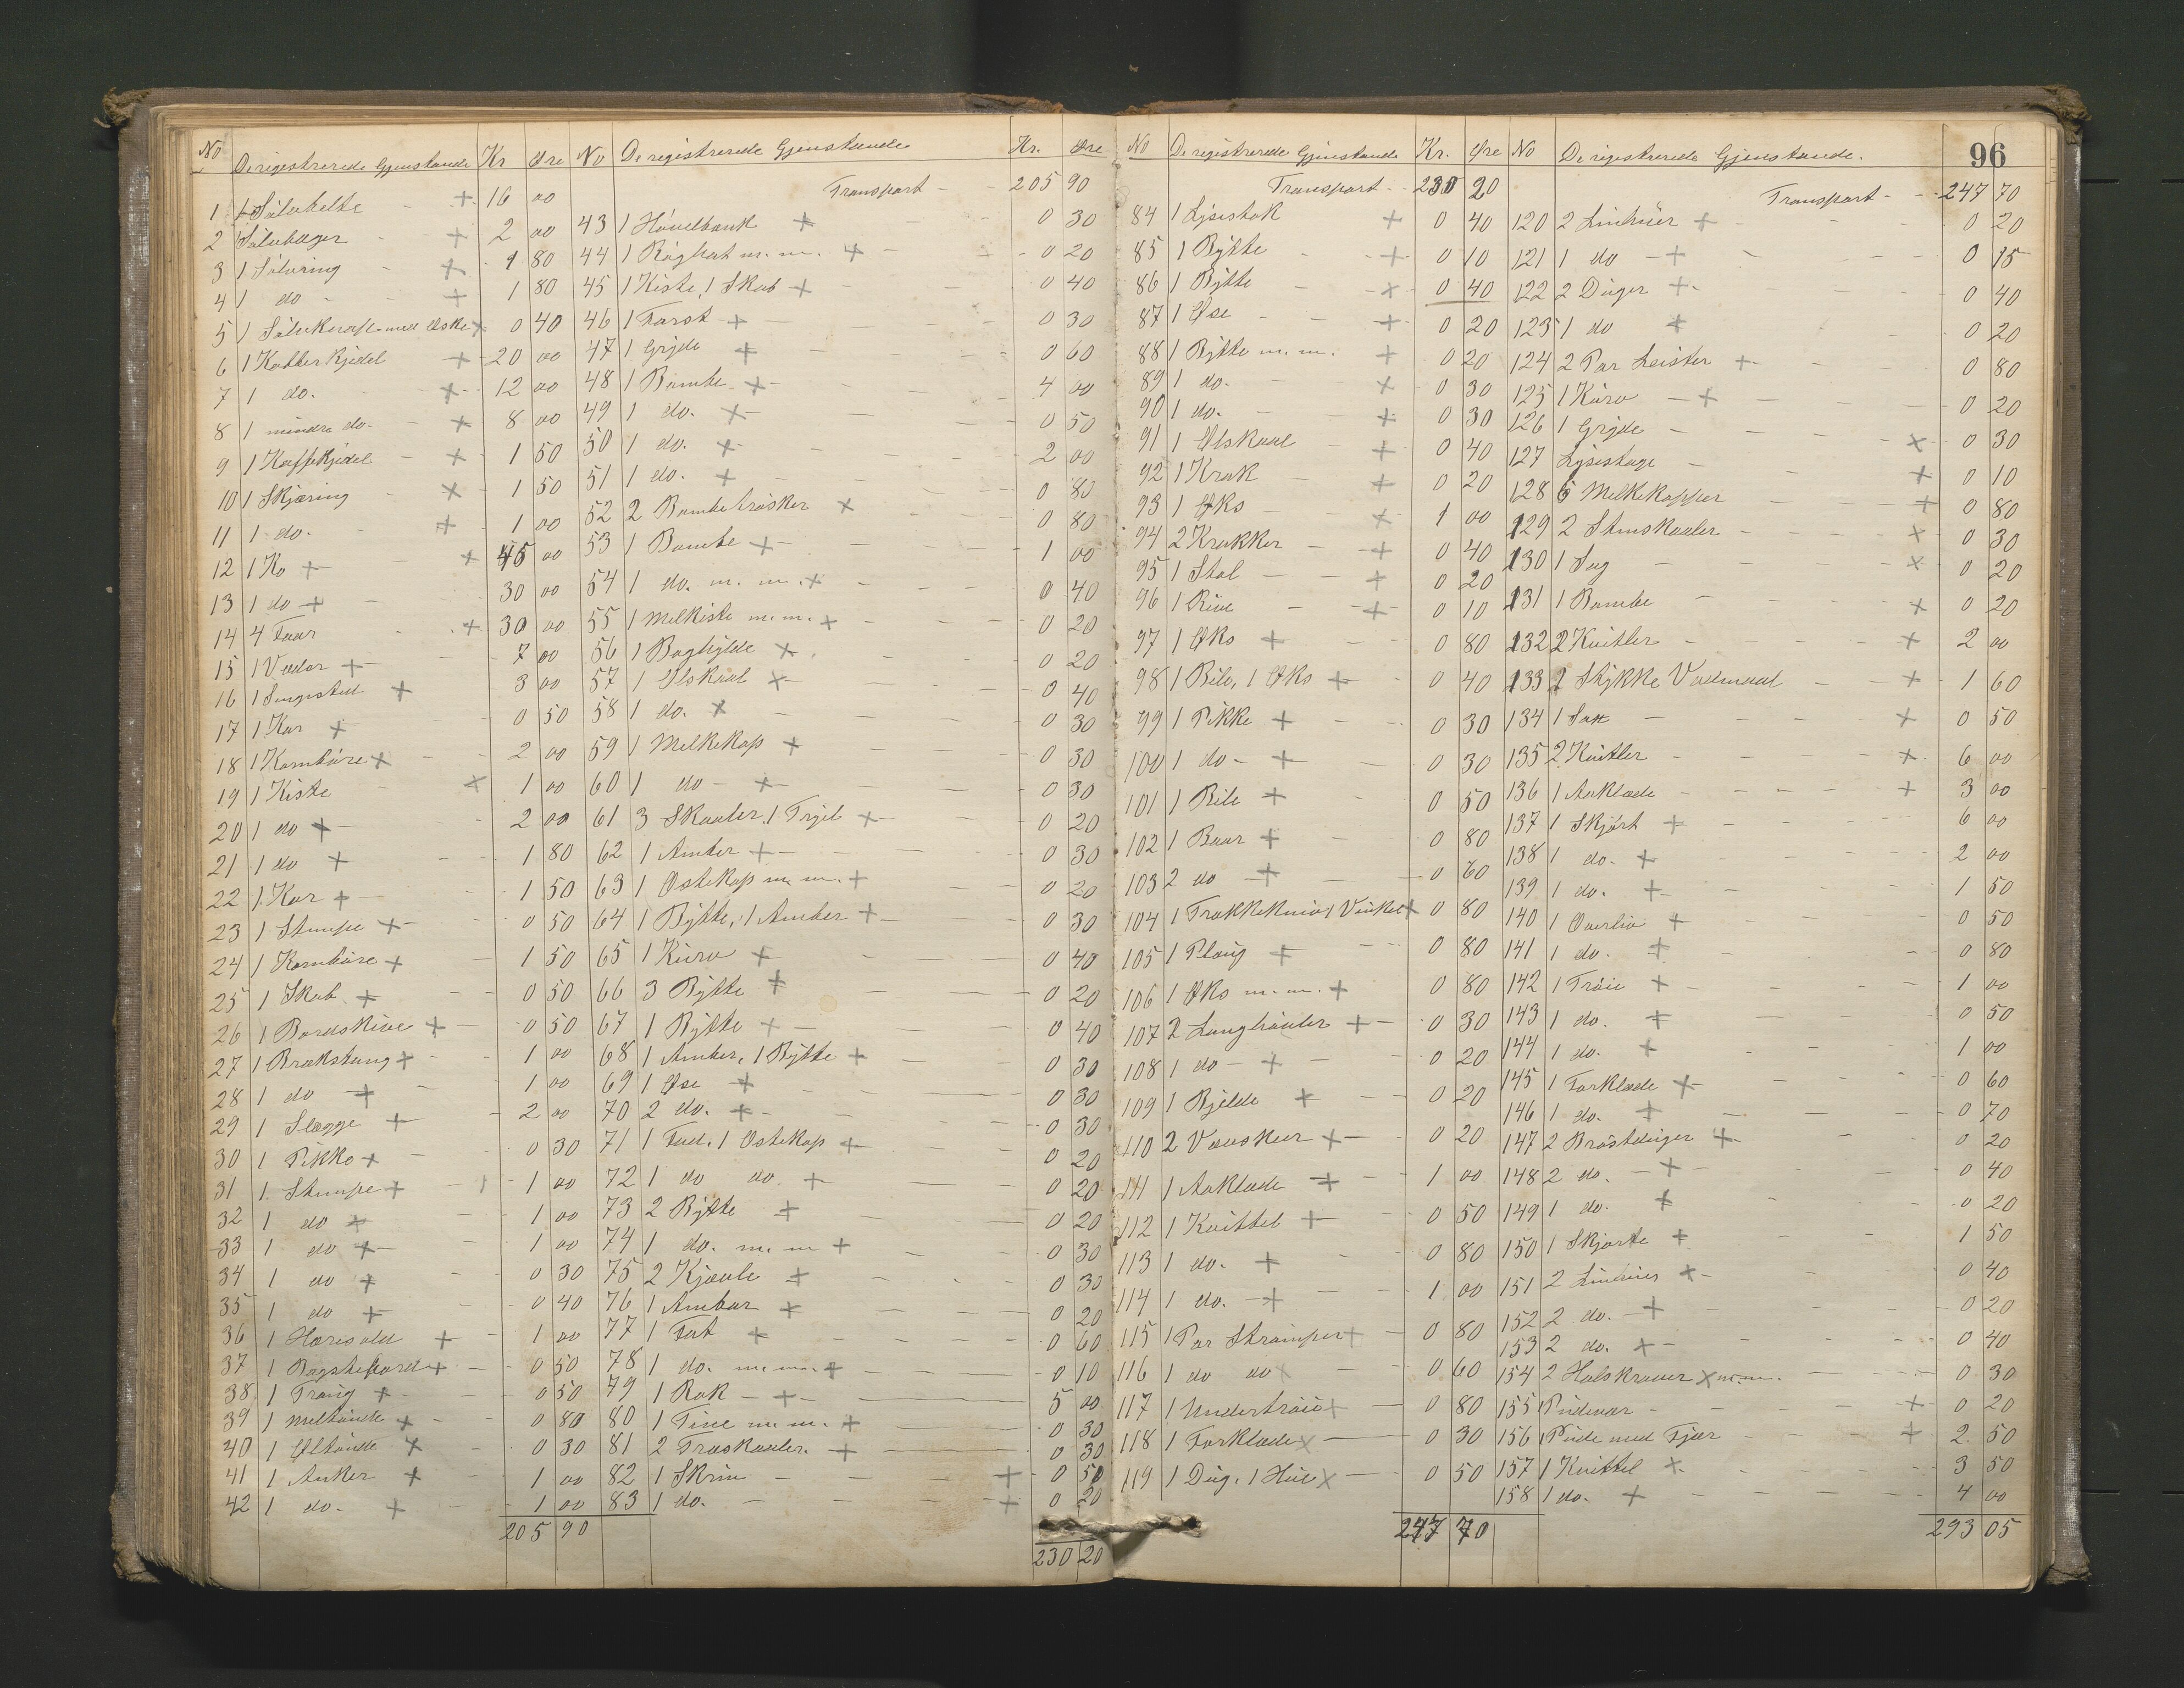 96
No De registrerede Gjenstande Kr Øre
1 1 Sølvbelte + 16 00
2 1 Sølvbæger + 2 00
3 1 Sølvring + 1 80
4 1 do + 1 80
5 1 Sølvknap med Æske + 0 40
6 1 Kobberkjedel + 20 00
7 1 do. + 12 00
8 1 mindre do. + 8 00
9 1 Kaffekjedel + 1 50
10 1 Skjæring + 1 50
11 1 do. + 1 00
12 1 Ko + + 45 00
13 1 do + 30 00
14 4 Faar + 30 00
15 1 Vædar + 7 00
16 1 Sengested + 3 00
17 1 Kar + 0 50
18 1 Kornbøre + 2 00
19 1 Kiste + 1 00
20 1 do + 2 00
21 1 do + 1 80
22 1 Kar + 1 50
23 1 Stempe + 0 50
24 1 Kornbøre + 1 50
25 1 Skab + 0 50
26 1 Bordskive + 0 50
27 1 Brækstang + 1 00
28 1 do + 1 00
29 1 Slægge + 2 00
30 1 Pikke + 0 30
31 1 Stempe + 1 00
32 1 do + 1 00
33 1 do + 1 00
34 1 do + 0 30
35 1 do + 0 40
36 1 Haresold + 1 00
37 1 + 0 50
38 1 Traug + 0 50
39 1 Meltønde + 0 80
40 1 Øltønde + 0 30
41 1 Anker + 1 00
42 1 do. + 1 00
205 90
No De registrerede Gjenstande Kr. Øre
Transport 205 90
43 1 Høvelbænk + 0 30
44 1 m. m. + 0 20
45 1 Kiste, 1 Skab + 0 40
46 1 Tarst + 0 30
47 1 Gryde + 0 60
48 1 Bombe + 4 00
49 1 do. + 0 50
50 1 do. + 2 00
51 1 do. + 0 80
52 2 Bombetrøsker + 0 80
53 1 Bombe + 1 00
54 1 do. m. m. + 0 40
55 1 Melkiste m. m. + 0 20
56 1 Baghylde + 0 20
57 1 Ølskaal + 0 40
58 1 do. + 0 30
59 1 Melkekop + 0 30
60 1 do + 0 30
61 3 Skaaler, 1 Trýel + 0 20
62 1 Amber + 0 30
63 1 Ostekop m. m. + 0 20
64 1 Bytte, 1 Amber + 0 30
65 1 Kurv + 0 40
66 3 Bytte + 0 20
67 1 Bytte + 0 40
68 1 Amber, 1 Bytte + 0 30
69 1 Øse + 0 30
70 2 do. + 0 30
71 1 Fad, 1 Ostekop + 0 20
72 1 do do + 0 20
73 2 Bytte + 0 20
74 1 do. m. m + 0 30
75 2 Kjævle + 0 30
76 1 Ambar + 0 20
77 1 Fat + 0 60
78 1 do. m. m. + 0 10
79 1 Rok + 5 00
80 1 Tine m. m. + 0 30
81 2 Træskaaler + 0 30
82 1 Skrin + 0 50
83 1 do. + 0 20
230 20
No De registrerede Gjenstande Kr. Øre
Transport 230 20
84 1 Lysestok + 0 40
85 1 Bytte + 0 10
86 1 Bytte + 0 40
87 1 Øse + 0 20
88 1 Bytte m. m. + 0 20
89 1 do. + 0 30
90 1 do. + 0 30
91 1 Ølskaal + 0 40
92 1 Krak + 0 20
93 1 Øks + 1 00
94 2 Krakker + 0 40
95 1 Stol + 0 20
96 1 Rive + 0 10
97 1 Øks + 0 80
98 1 Bile, 1 Øks + 0 40
99 1 Pikke + 0 30
100 1 do + 0 30
101 1 Bile + 0 50
102 1 Baar + 0 80
103 2 do + 0 60
104 1 Trækkekniv 1 Vinkel + 0 80
105 1 Plaug + 0 80
106 1 Øks m. m. + 0 80
107 2 Langhøvler + 0 30
108 1 do + 0 20
109 1 Bjelde + 0 20
110 2 + 0 20
111 1 Aaklæde + 1 00
112 1 Kvittel + 0 50
113 1 do. + 0 80
114 1 do. + 1 00
115 1 Par Strømper + 0 80
116 1 do do + 0 60
117 1 Undertrøie + 0 80
118 1 Forklæde + 0 30
119 1 Dug, 1 Hue + 0 50
247 70
No De registrerede Gjenstande.
Transport 247 70
120 2 Linhuer + 0 20
121 1 do + 0 15
122 2 Duger + 0 40
123 1 do + 0 20
124 2 Par Leister + 0 80
125 1 Kurv + 0 20
126 1 Gryde + 0 30
127 Lysestage + 0 10
128 6 Melkekopper + 0 80
129 2 Stenskaaler + 0 30
130 1 Sag + 0 20
131 1 Bombe + 0 20
132 2 Kvitler + 2 00
133 2 Stykke Vadmaal + 1 60
134 1 Sax + 0 50
135 2 Kvitler + 6 00
136 1 Aaklæde + 3 00
137 1 Skjørt + 6 00
138 1 do. + 2 00
139 1 do. + 1 50
140 1 Overliv + 0 50
141 1 do. + 0 80
142 1 Trøie + 1 00
143 1 do. + 0 50
144 1 do. + 1 00
145 1 Forklæde + 0 60
146 1 do. + 0 70
147 2 Brøstduger + 0 20
148 2 do. + 0 40
149 1 do. + 0 20
150 1 Skjorte + 1 50
151 2 Linhuer + 0 40
152 2 do. + 0 20
153 2 do. + 0 40
154 2 Halskraver + m. m. 0 30
155 1 Pudevar + 0 20
156 1 Pude med Fjær + 2 50
157 1 Kvittel + 3 50
158 1 do. + 4 00
293 05